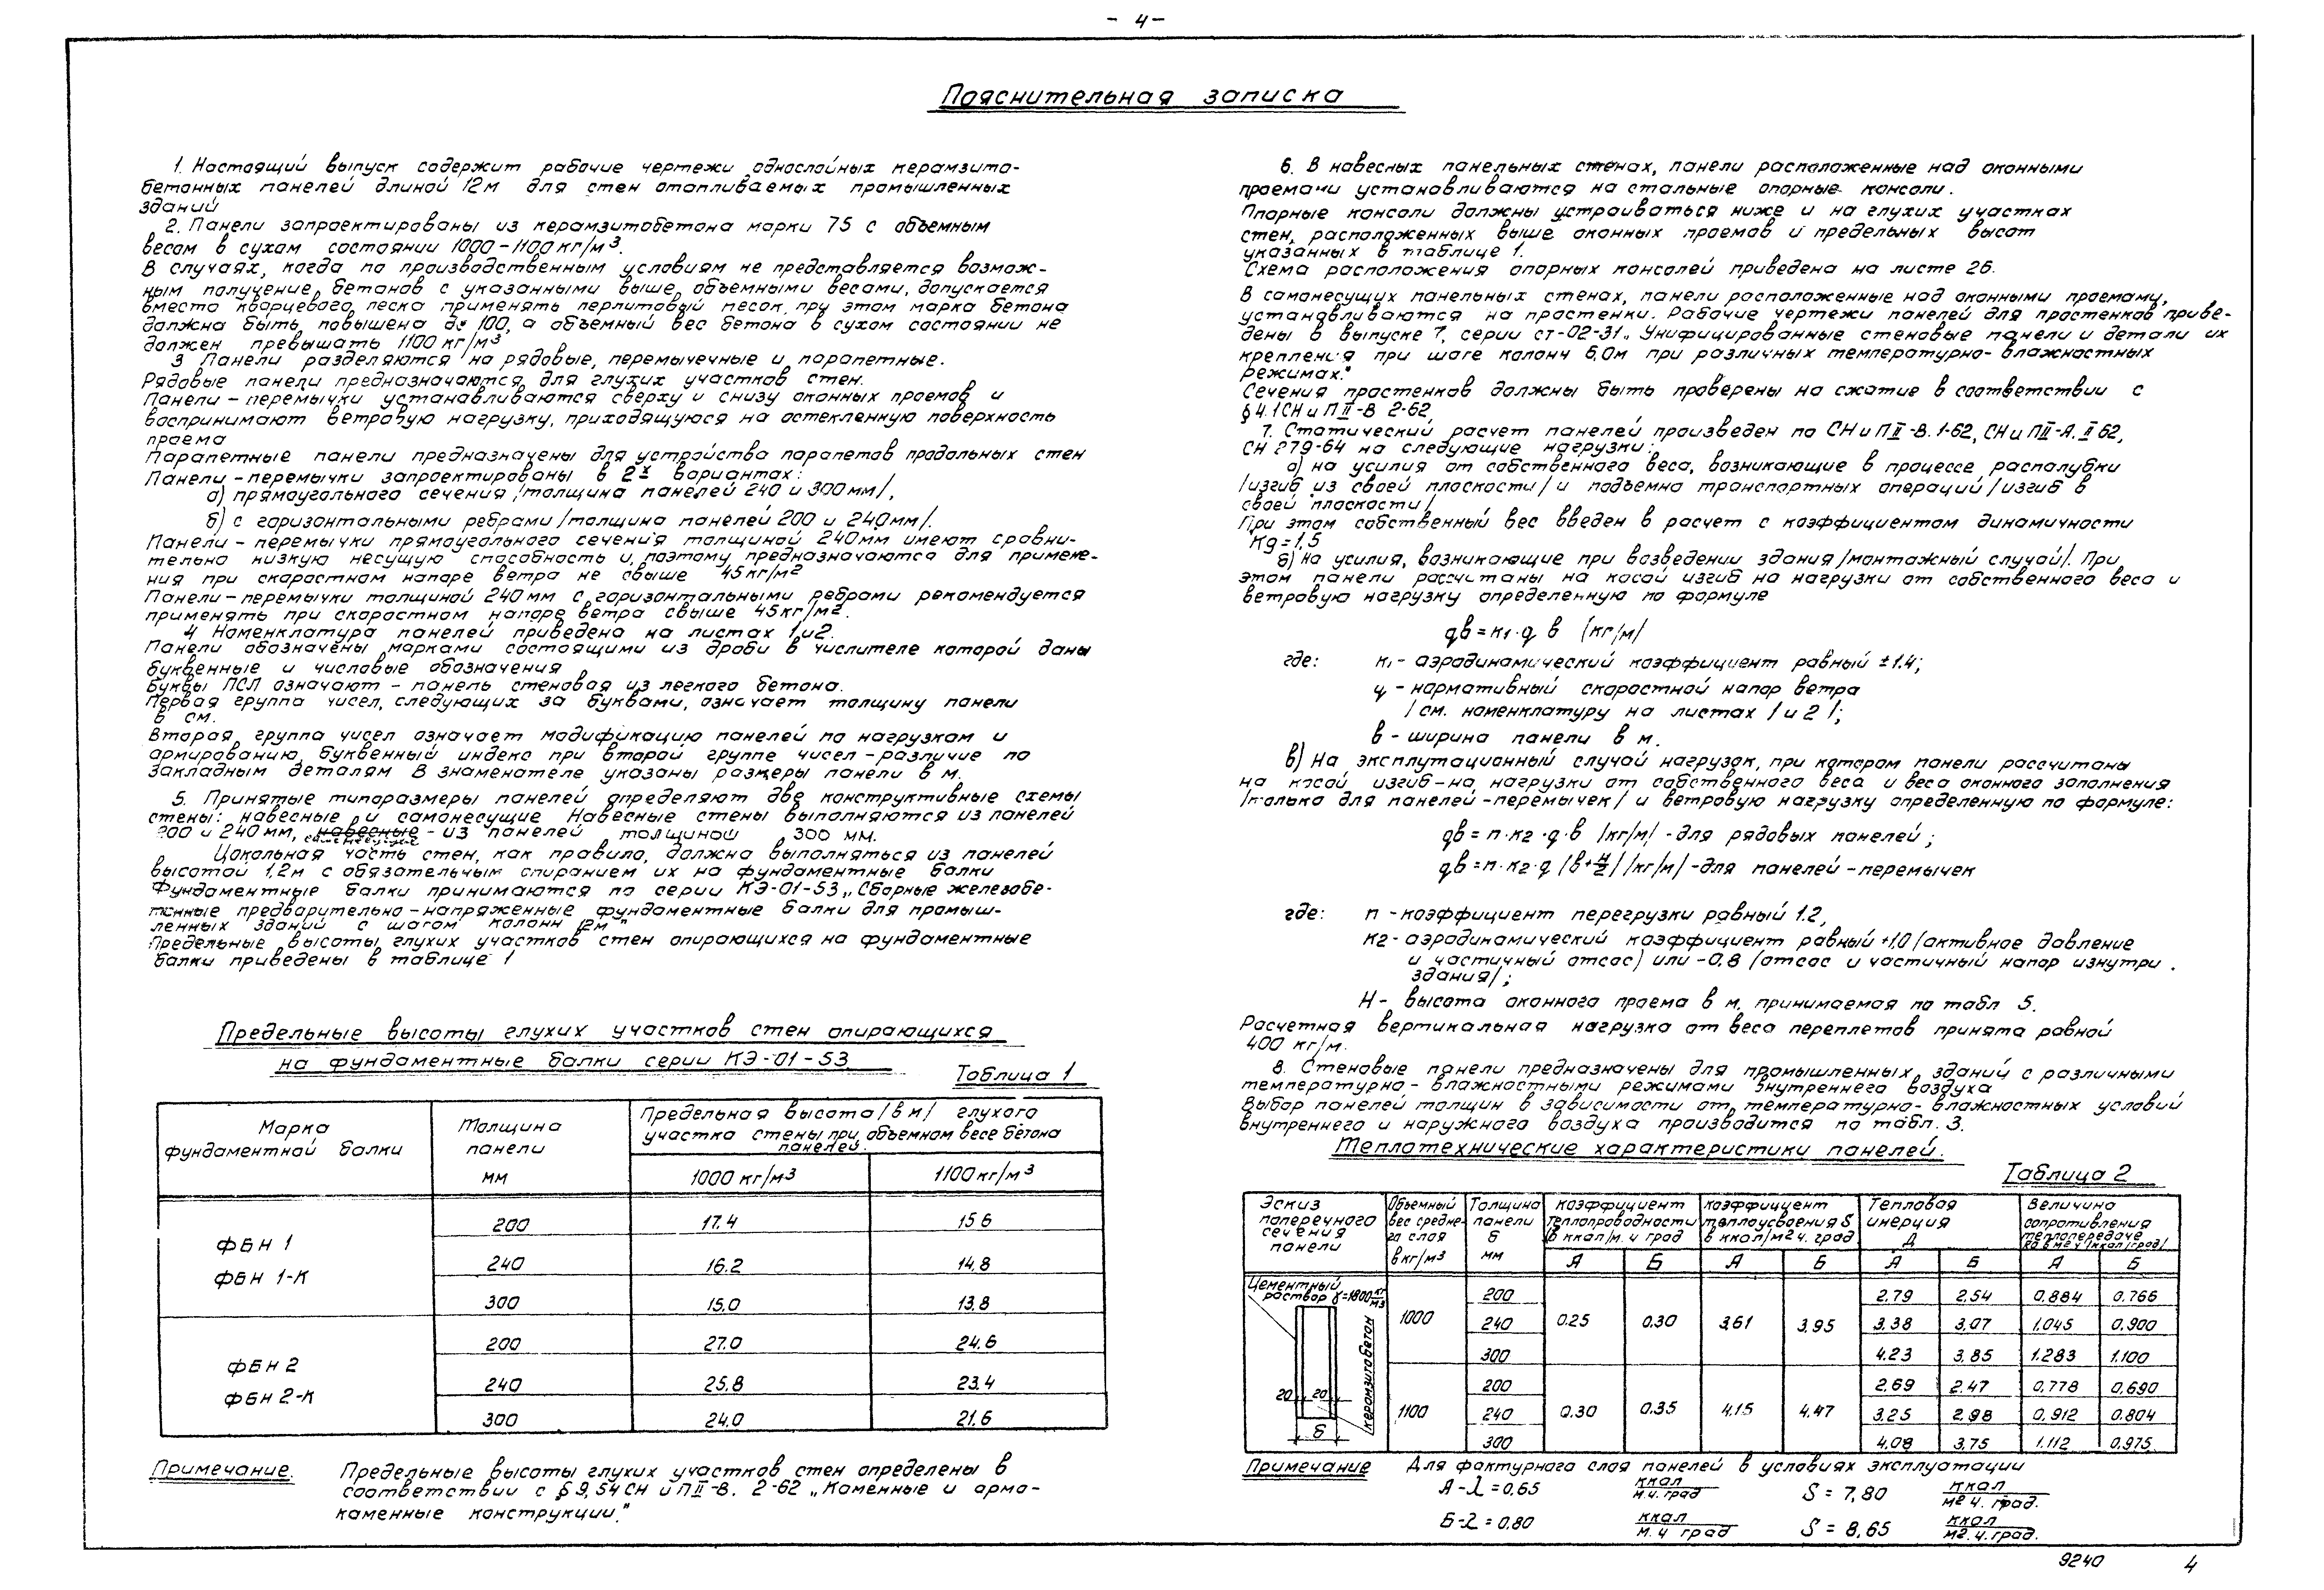 - 4 -
Пояснительная записка
1. Настоящий выпуск содержит рабочие чертежи однослойных керамзито-
бетонных панелей длиной 12м для стен отапливаемых промышленных
зданий
2. Панели запроектированы из керамзитобетона марки 75 с объемным
весом в сухом состоянии 1000-1100кг/м³.
В случаях, когда по производственным условиям не представляется возмож-
ным получение бетонов с указанными выше объемными весами, допускается
вместо кварцевого песка применять перлитовый песок, при этом марка бетона
должна быть повышена до 100, а объемный вес бетона в сухом состоянии не
должен превышать 1100 кг/м³
3 Панели разделяются на рядовые, перемычечные и парапетные.
Рядовые панели предназначаются для глухих участков стен.
Панели-перемычки устанавливаются сверху и снизу оконных проемов и
воспринимают ветровую нагрузку, приходящуюся на остекленную поверхность
проема
Парапетные панели предназначены для устройства парапетов продольных стен
Панели-перемычки запроектированы в 2х вариантах:
а) прямоугольного сечения /толщина панелей 240 и 300мм/,
б) с горизонтальными ребрами /толщина панелей 200 и 240мм/.
Панели-перемычки прямоугольного сечения толщиной 240мм имеют сравни-
тельно низкую несущую способность и поэтому предназначаются для примене-
ния при скоростном напоре ветра не свыше 45кг/м²
Панели-перемычки толщиной 240мм с горизонтальными ребрами рекомендуется
применять при скоростном напоре ветра свыше 45кг/м².
4 Номенклатура панелей приведена на листах 1и2.
Панели обозначены марками состоящими из дроби в числителе которой даны
буквенные и числовые обозначения
Буквы ПСЛ означают - панель стеновая из легкого бетона.
Первая группа чисел, следующих за буквами, означает толщину панели
в см.
Вторая группа чисел означает модификацию панелей по нагрузкам и
армированию, буквенный индекс при второй группе чисел - различие по
закладным деталям В знаменателе указаны размеры панели в м.
5. Принятые типоразмеры панелей определяют две конструктивные схемы
стены: навесные и самонесущие Навесные стены выполняются из панелей
200 и 240мм, навесные - из панелей толщиной 300 мм.
самонесущие
Цокольная часть стен, как правило, должна выполняться из панелей
высотой 1,2м с обязательным опиранием их на фундаментные балки
Фундаментные балки принимаются по серии КЭ-01-53 „Сборные железобе-
тонные предварительно-напряженные фундаментные балки для промыш-
ленных зданий с шагом колонн 12м"
Предельные высоты глухих участков стен опирающихся на фундаментные
балки приведены в таблице 1
Предельные высоты глухих участков стен опирающихся
на фундаментные балки серии КЭ-01-53.
Таблица 1
Марка фундаментной балки | Толщина панели мм | Предельная высота /в м/ глухого участка стены при объемном весе бетона панелей.
1000 кг/м³ | 1100кг/м³
ФБН 1 ФБН 1-К
200 17.4 15.6
240 16.2 14.8
300 15.0 13.8
ФБН 2 ФБН 2-К
200 27.0 24.6
240 25.8 23.4
300 24.0 21.6
Примечание. Предельные высоты глухих участков стен определены в
соответствии с § 9,54 СН и П II-В. 2-62 „Каменные и армо-
каменные конструкции."
6. В навесных панельных стенах, панели расположенные над оконными
проемами устанавливаются на стальные опорные консоли.
Опорные консоли должны устраиваться ниже и на глухих участках
стен, расположенных выше оконных проемов и предельных высот
указанных в таблице 1.
Схема расположения опорных консолей приведена на листе 26.
В самонесущих панельных стенах, панели расположенные над оконными проемами,
устанавливаются на простенки. Рабочие чертежи панелей для простенков приве-
дены в выпуске 7, серии ст-02-31 „Унифицированные стеновые панели и детали их
крепления при шаге колонн 6,0м при различных температурно-влажностных
режимах."
Сечения простенков должны быть проверены на сжатие в соответствии с
§ 4.1 СН и П II-В 2-62
7. Статический расчет панелей произведен по СН и П II-В.1-62, СН и П II-А. II 62,
СН 279-64 на следующие нагрузки:
а) на усилия от собственного веса, возникающие в процессе распалубки
/изгиб из своей плоскости/ и подъемно транспортных операций /изгиб в
своей плоскости/
При этом собственный вес введен в расчет с коэффициентом динамичности
Kg = 1,5
б) На усилия, возникающие при возведении здания /монтажный случай/. При
этом панели рассчитаны на косой изгиб на нагрузки от собственного веса и
ветровую нагрузку определенную по формуле
qв = к₁·q в /кг/м/
где: к₁ - аэродинамический коэффициент равный ±1.4;
q - нормативный скоростной напор ветра
/ см. номенклатуру на листах 1 и 2 /;
в - ширина панели в м.
в) На эксплутационный случай нагрузок, при котором панели рассчитаны
на косой изгиб-на нагрузки от собственного веса и веса оконного заполнения
/только для панелей-перемычек/ и ветровую нагрузку определенную по формуле:
qв = п·к₂·q·в /кг/м/ - для рядовых панелей;
qв = п·к₂·q /в+H/2/ /кг/м/ - для панелей-перемычек
где: п - коэффициент перегрузки равный 1.2,
к₂ - аэродинамический коэффициент равный +1,0 /активное давление
и частичный отсос) или -0,8 /отсос и частичный напор изнутри
здания/;
H - высота оконного проема в м, принимаемая по табл 5.
Расчетная вертикальная нагрузка от веса переплетов принята равной
400 кг/м.
8. Стеновые панели предназначены для промышленных зданий с различными
температурно-влажностными режимами внутреннего воздуха
Выбор панелей толщин в зависимости от температурно-влажностных условий
внутреннего и наружного воздуха производится по табл. 3.
Теплотехнические характеристики панелей.
Таблица 2
Эскиз поперечного сечения панели | Объемный вес средне-го слоя в кг/м³ | Толщина панели δ мм | коэффициент теплопроводности в ккал/м.ч град | коэффициент теплоусвоения S в ккал/м²ч.град | Тепловая инерция Д | Величина сопротивления теплопередаче
А Б А Б А Б А Б
Цементный
раствор γ=1800 кг/м3
керамзитобетон
20 20
δ
1000 0.25 0.30 3,61 3,95
200 2.79 2.54 0,884 0.766
240 3.38 3,07 1.045 0.900
300 4.23 3,85 1.283 1.100
1100 0.30 0.35 4.15 4.47
200 2.69 2.47 0,778 0,690
240 3,25 2.98 0,912 0.804
300 4.08 3.75 1.112 0.975
Примечание Для фактурного слоя панелей в условиях эксплуатации
А - λ = 0,65 ккал/м.ч.град S = 7,80 ккал/м² ч. град.
Б - λ = 0.80 ккал/м.ч град S = 8,65 ккал/м².ч.град.
9240 4